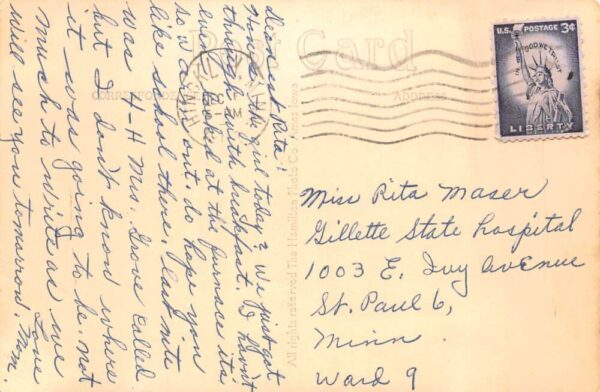 Post Card
CORRESPONDENCE
ADDRESS
U.S. POSTAGE 3¢
IN GOD WE TRUST
LIBERTY
Dearest Rita:
How's the girl today? We just got
through with breakfast. D. hasn't
even looked at the furnace its
so is out. do hope you
like school there. last nite
was 4-H Mrs. Grove called
but I don't know where
it was going to be. not
much to write as we
will see you tomorrow.
Love
Mom.
All rights reserved The Hamilton Photo Co Ames Iowa
Miss Rita Maser
Gillette State hospital
1003 E. Ivy avenue
St. Paul 6,
Minn
Ward 9